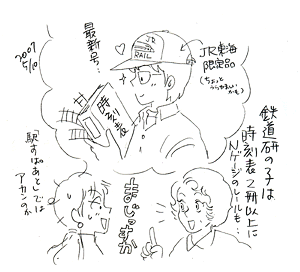 2009
5/10
最新号…
JR
RAIL
JR東海
限定品
(ちょっと
うらやましい
かも)
時刻表
鉄道研の子は
時刻表2冊以上に
Nゲージのレールも…
まじっすか
駅すぱあとでは
アカンのか